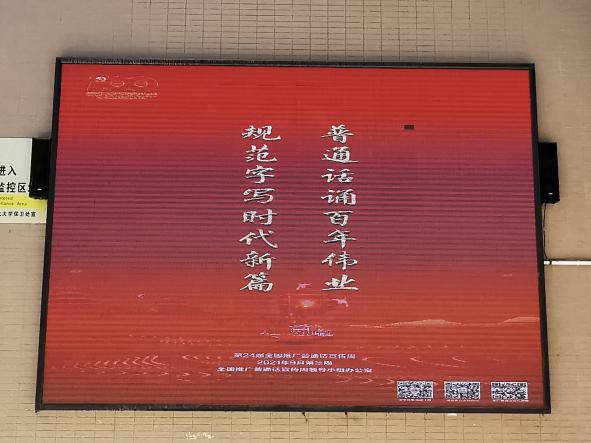 普通话诵百年伟业
规范字写时代新篇
第24届全国推广普通话宣传周
2021年9月第三周
全国推广普通话宣传周领导小组办公室
进入
监控区域
大学保卫处宣